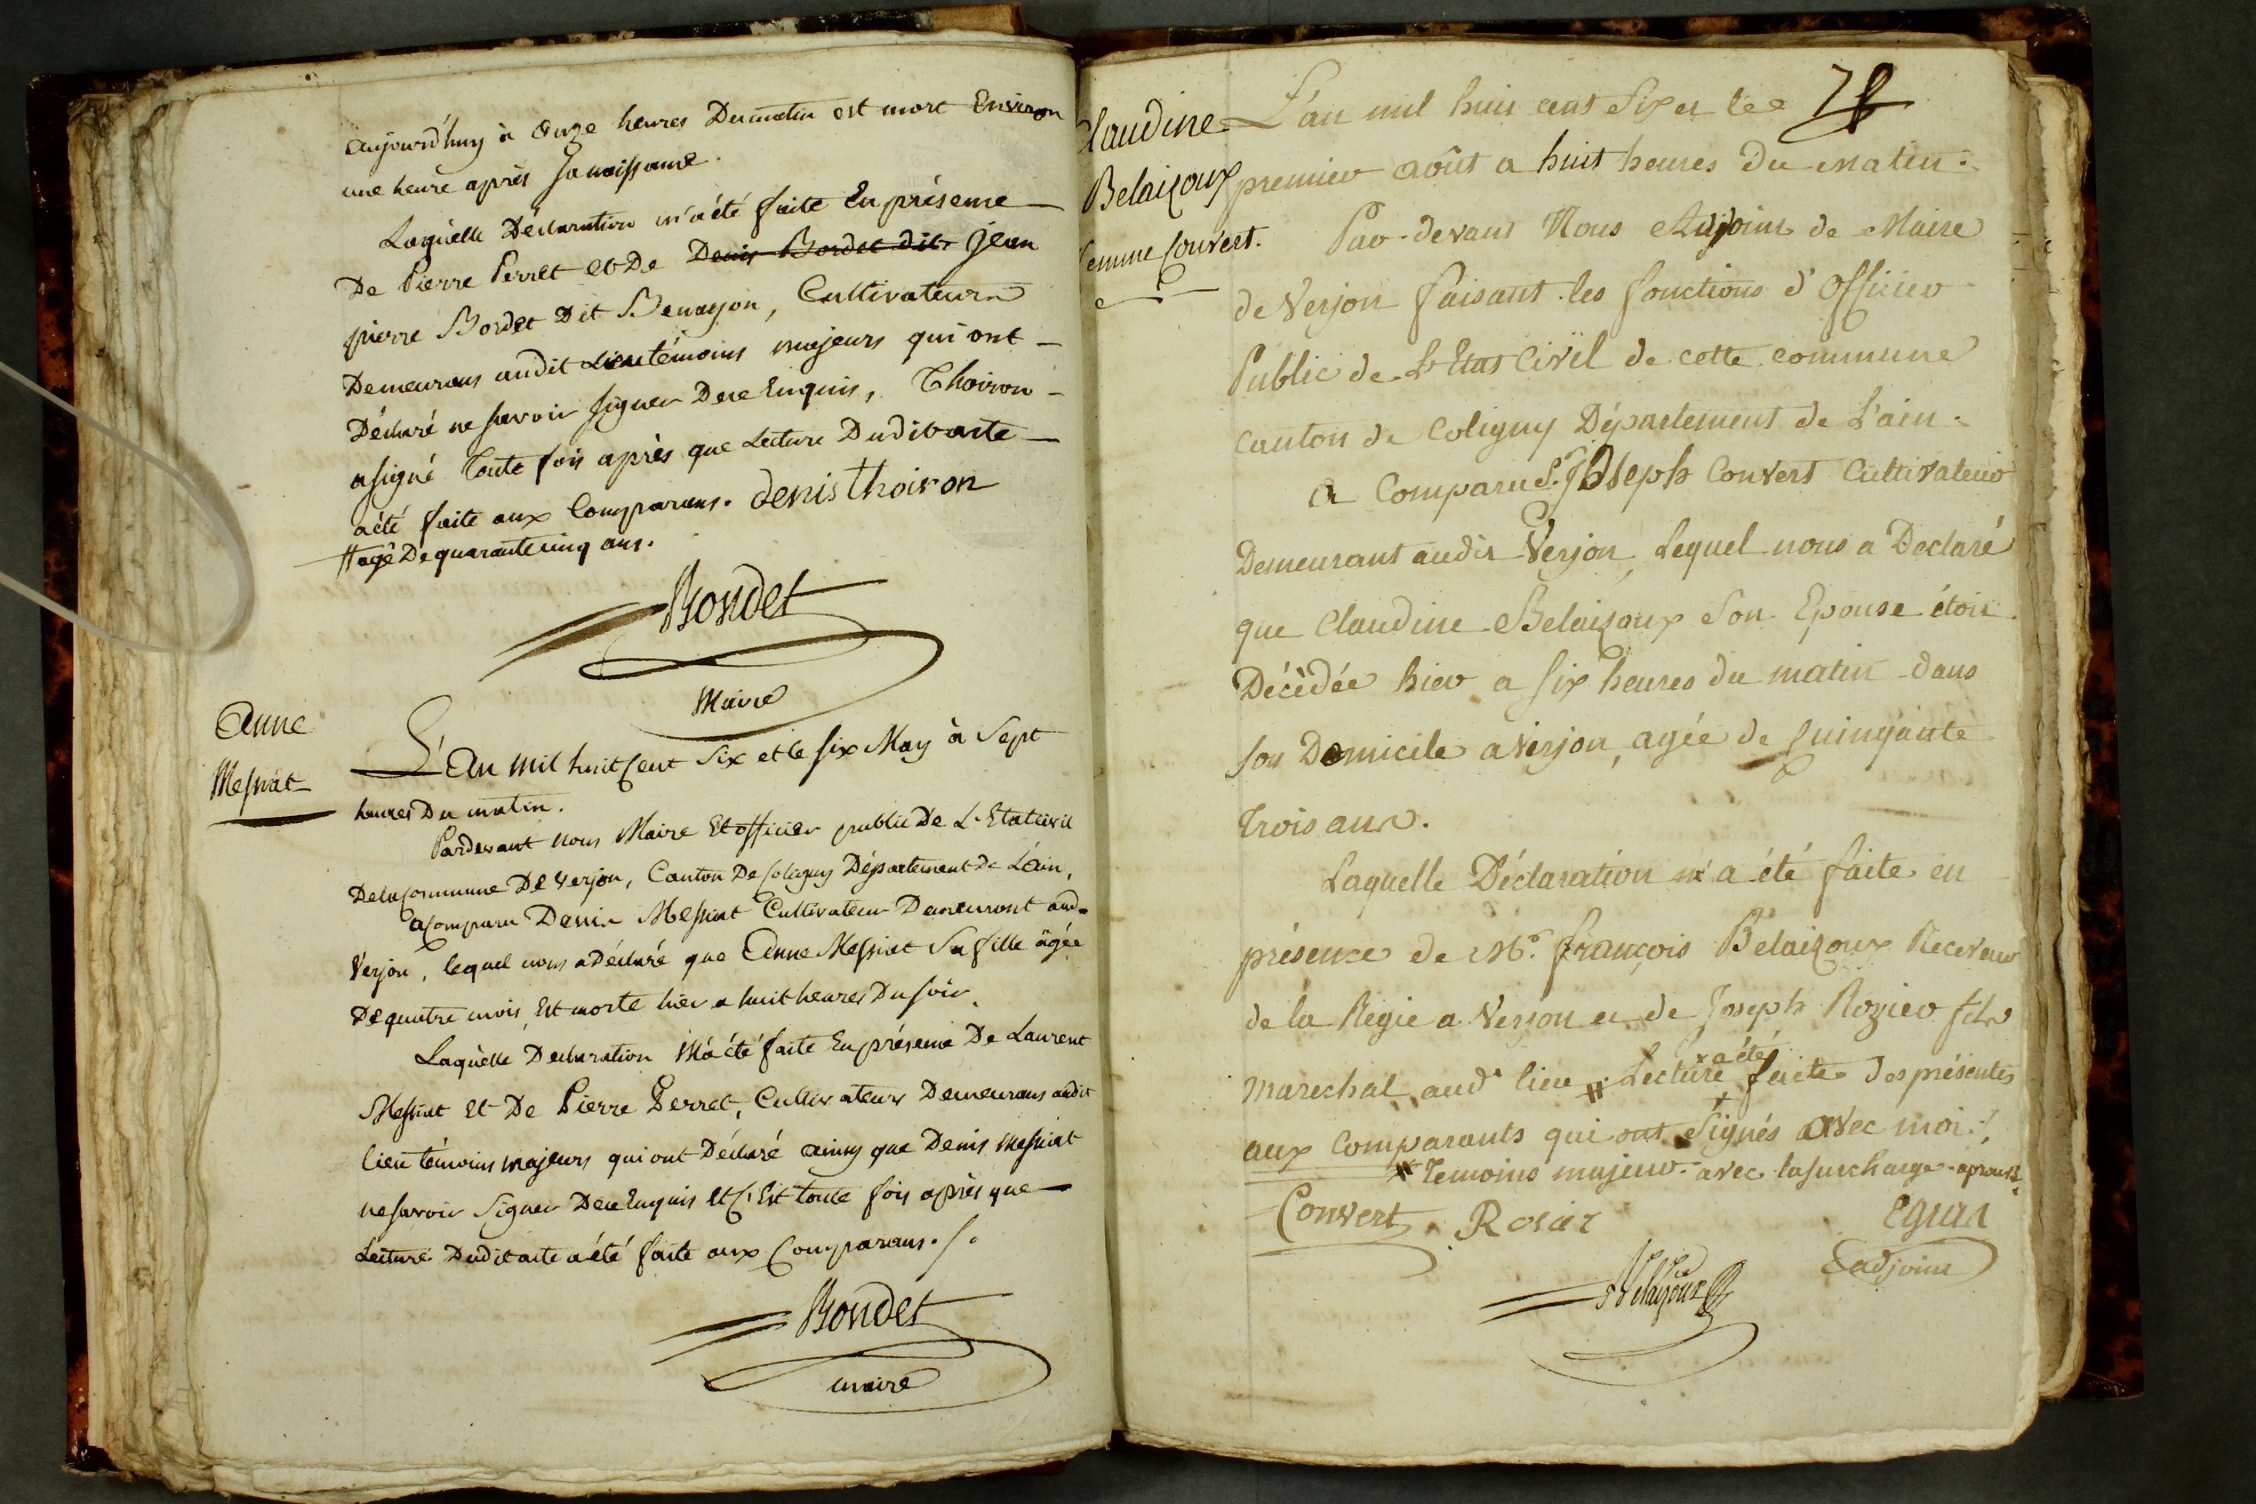 aujourd'huy à onze heures Du matin est mort Environ
une heure après Sa naissance.
Laquelle Déclaration m'a été faite En présence
De Pierre Perret et De Denis Bordet dit Jean
pierre Bordet Dit Benayon, Cultivateurs
Demeurans audit Lieu témoins majeurs qui ont
Déclaré ne savoir signer De ce Enquis, Thoiron
a signé Toute fois après que Lecture Dudit acte
a été faite aux Comparans. denis thoiron
# agé De quarante cinq ans.
Bondet
Maire
Anne
Messiat
L'an mil huit Cent Six et le six May à Sept
heures Du matin.
Pardevant nous Maire Et officier public De L'Etat civil
De la Commune De verjon, Canton De Coligny Département de L'ain,
a Comparu Denis Messiat Cultivateur Demeurant aud.
Verjon, lequel nous a Déclaré que Anne Messiat Sa fille âgée
De quatre mois, Est morte hier a huit heures Du soir.
Laquelle Declaration M'a été faite En présence De Laurent
Messiat Et De Pierre Perret, Cultivateurs Demeurans audit
lieu témoins majeurs qui ont Déclaré ainsy que Denis Messiat
ne savoir Signer De ce Enquis et C'Est toute fois après que
Lecture Dudit acte a été faite aux Comparans./.
Bondet
maire
Claudine
Belaizoux
femme Convert.
L'an mil huit cent Six et le
premier août a huit heures du matin.
Par-devant Nous Adjoint de Maire
de Verjon faisant les fonctions d'Officier
Public de L'Etat Civil de cette commune
Canton de Coligny Département de L'ain.
a Comparu S. Joseph Convert Cultivateur
Demeurant audit Verjon, Lequel nous a Déclaré
que Claudine Belaizoux Son Epouse étoit
Décèdée hier a six heures du matin dans
son Domicile a Verjon, agée de Cinquante
Trois ans.
Laquelle Déclaration m'a été faite en
présence de Mr. françois Belaizoux Receveur
de la Régie a Verjon et de Joseph Rozier fils
marechal aud.t lieu # Lecture x a été faite des présentes
aux Comparants qui ont Signés avec moi.
# Temoins majeur. avec la surcharge aprouvé.
Convert Rosier
adjoint
Belaizoux